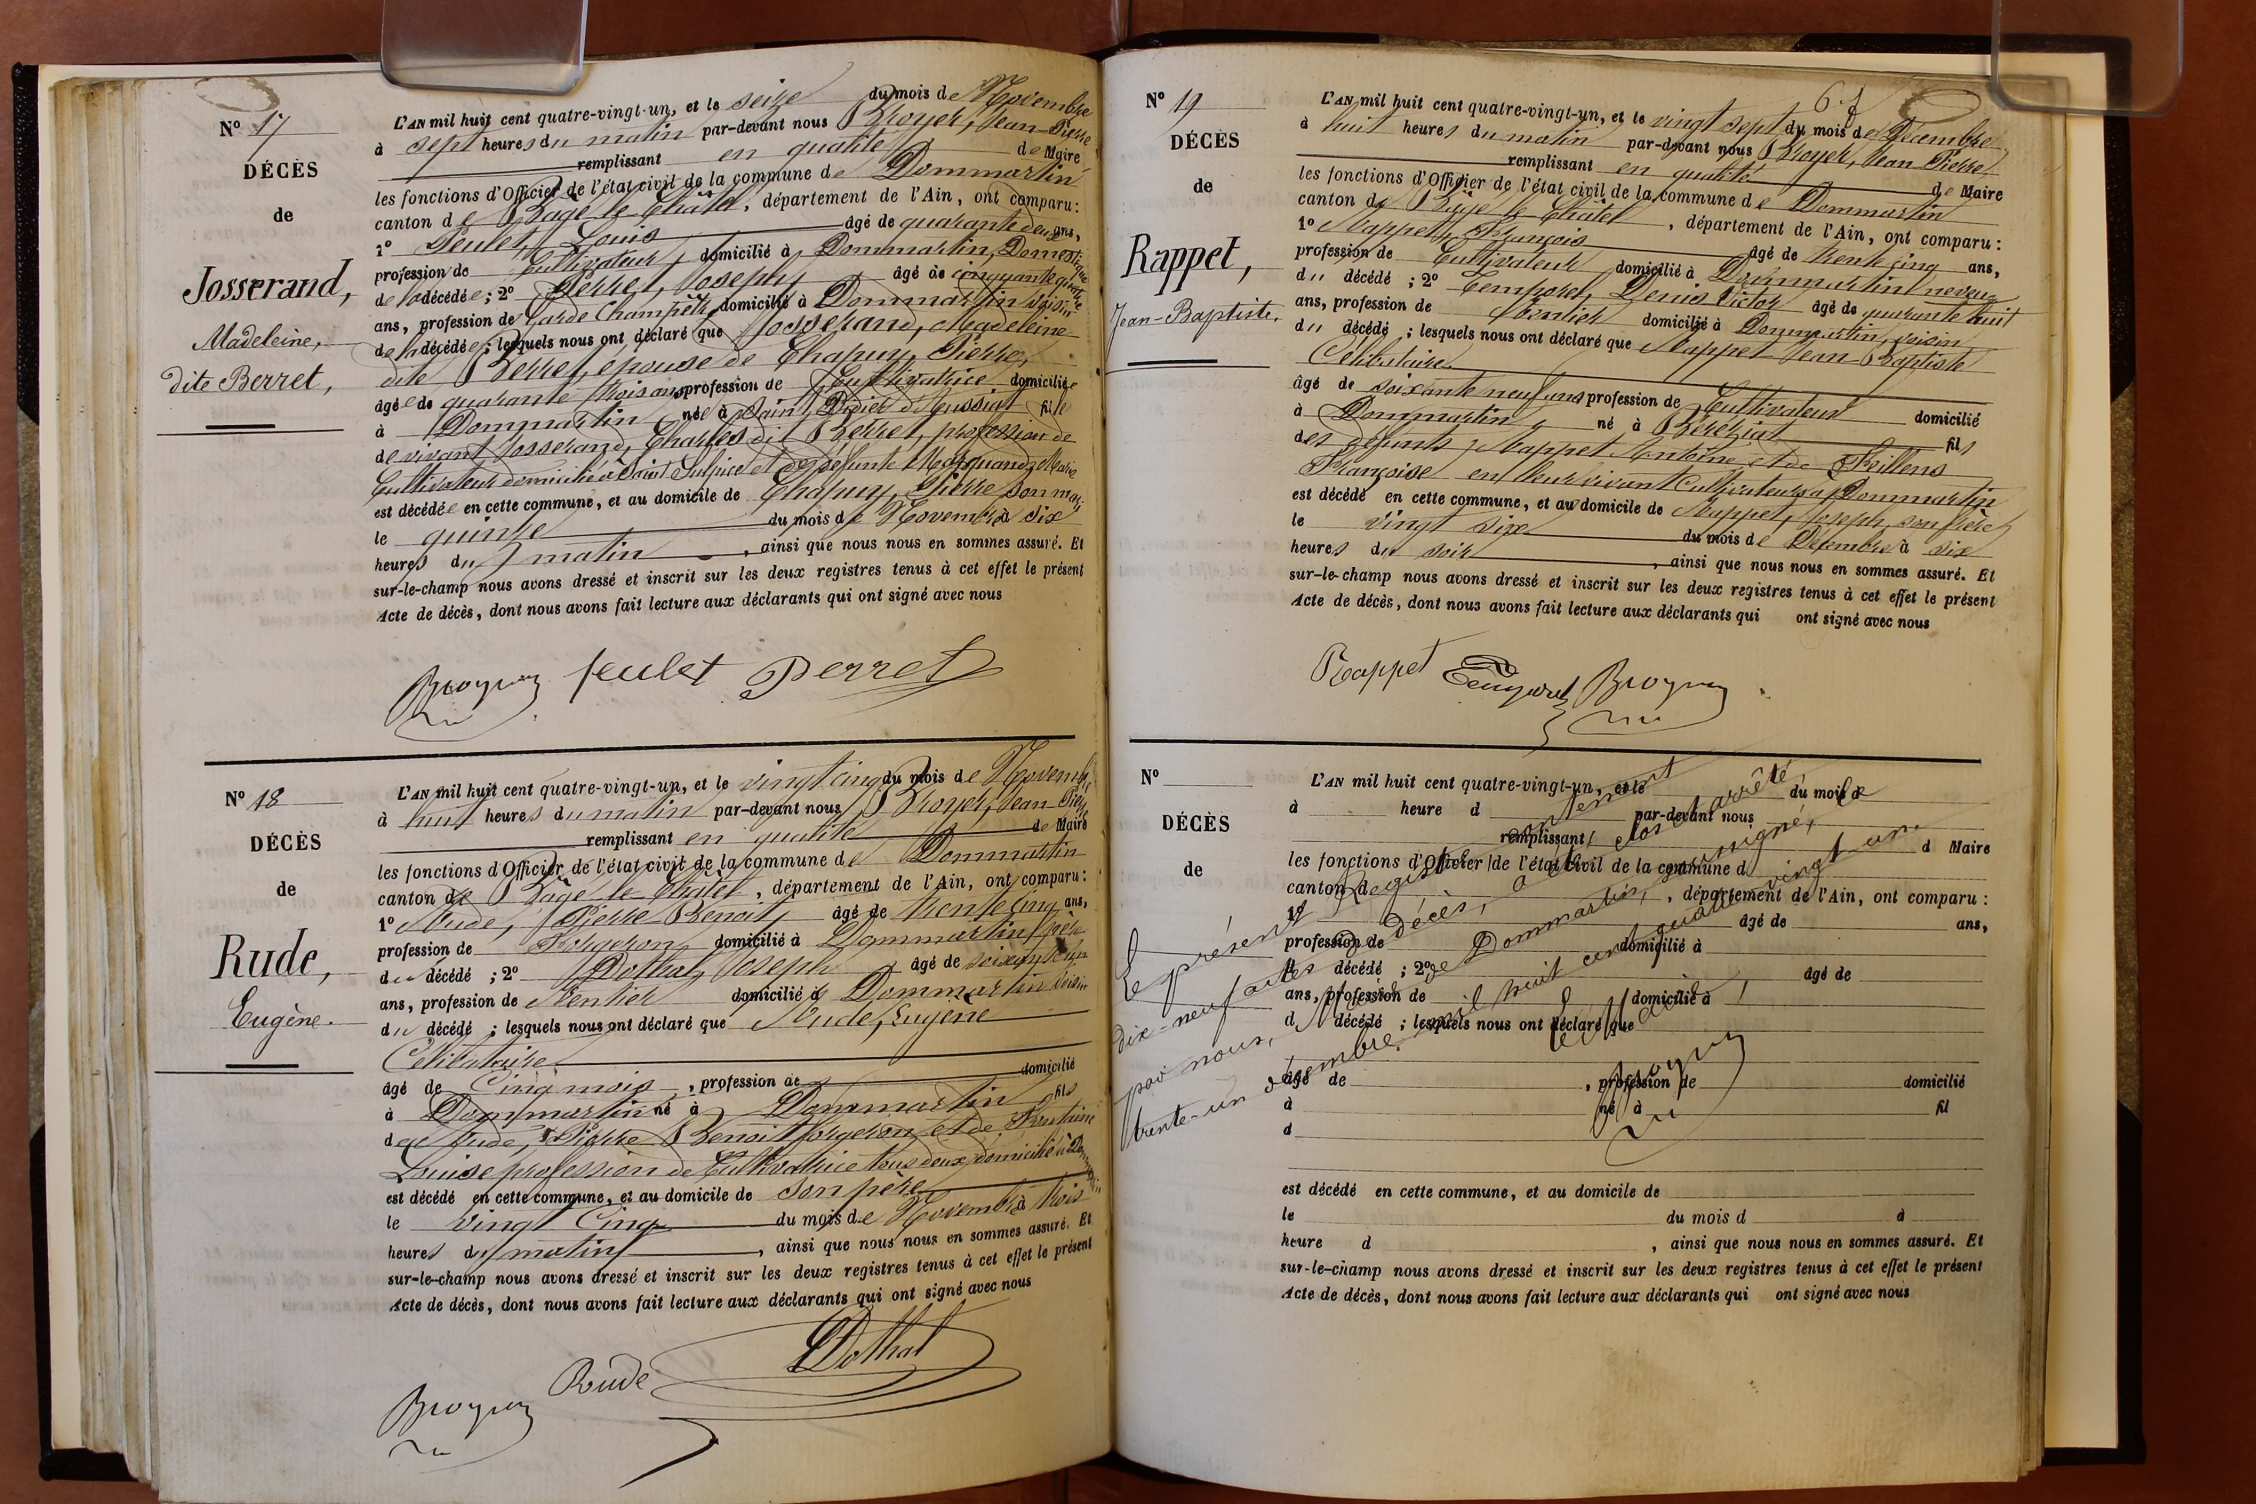 Nº 17
DÉCÈS
de
Josserand,
Madeleine,
dite Berret,
L'AN mil huit cent quatre-vingt-un, et le seize du mois de Novembre
à sept heures du matin par-devant nous Broyer, Jean-Pierre
remplissant en qualité de Maire
les fonctions d'Officier de l'état civil de la commune de Dommartin
canton de Bagé le Châtel, département de l'Ain, ont comparu :
1º Feulet, Louis âgé de quarante deux ans,
profession de Cultivateur domicilié à Dommartin, Domestique
de la décédée ; 2º Perret, Joseph âgé de cinquante quatre
ans, profession de Garde Champêtre domicilié à Dommartin voisin
de la décédée ; lesquels nous ont déclaré que Josserand, Madeleine
dite Berret, épouse de Chapuy, Pierre,
âgée de quarante trois ans profession de Cultivatrice domiciliée
à Dommartin née à Saint Didier d'Aussiat fille
de vivant Josserand, Charles dit Berret, profession de
Cultivateur domicilié à Saint Sulpice et de défunte Marie
est décédée en cette commune, et au domicile de Chapuy, Pierre son mari
le quinze du mois de Novembre à six
heures du matin, ainsi que nous nous en sommes assuré. Et
sur-le-champ nous avons dressé et inscrit sur les deux registres tenus à cet effet le présent
Acte de décès, dont nous avons fait lecture aux déclarants qui ont signé avec nous
Broyer feulet Perret
Nº 18
DÉCÈS
de
Rude,
Eugène.
L'AN mil huit cent quatre-vingt-un, et le vingt cinq du mois de Novembre
à huit heures du matin par-devant nous Broyer, Jean Pierre
remplissant en qualité de Maire
les fonctions d'Officier de l'état civil de la commune de Dommartin
canton de Bâgé le Châtel, département de l'Ain, ont comparu :
1º Rude, Pierre Benoit, âgé de trente cinq ans,
profession de Forgeron, domicilié à Dommartin, père
du décédé ; 2º Dothal, Joseph âgé de soixante un
ans, profession de Rentier domicilié à Dommartin voisin
du décédé ; lesquels nous ont déclaré que Rude, Eugène
Célibataire
âgé de Cinq mois, profession de domicilié
à Dommartin né à Dommartin fils
de Rude, Pierre Benoit forgeron et de
Louise profession de Cultivatrice tous deux domicilié à Dommartin
est décédé en cette commune, et au domicile de son père
le vingt Cinq du mois de Novembre à trois
heures du matin, ainsi que nous nous en sommes assuré. Et
sur-le-champ nous avons dressé et inscrit sur les deux registres tenus à cet effet le présent
Acte de décès, dont nous avons fait lecture aux déclarants qui ont signé avec nous
Broyer Rude Dothal
Nº 19
DÉCÈS
de
Rappet,
Jean-Baptiste.
L'AN mil huit cent quatre-vingt-un, et le vingt sept du mois de Décembre
à huit heures du matin par-devant nous Broyer, Jean Pierre
remplissant en qualité de Maire
les fonctions d'Officier de l'état civil de la commune de Dommartin
canton de Bâgé le Châtel, département de l'Ain, ont comparu :
1º Rappet, François âgé de trente cinq ans,
profession de Cultivateur domicilié à Dommartin neveu
du décédé ; 2º Temporel, Denis Victor âgé de quarante huit
ans, profession de Rentier domicilié à Dommartin, voisin
du décédé ; lesquels nous ont déclaré que Rappet Jean-Baptiste
Célibataire
âgé de soixante neuf ans profession de Cultivateur domicilié
à Dommartin, né à Béréziat fils
des défunts Rappet Antoine et de Feillens
Françoise en leur vivant Cultivateurs à Dommartin
est décédé en cette commune, et au domicile de Rappet, Joseph, son frère
le vingt six du mois de Décembre à six
heures du soir, ainsi que nous nous en sommes assuré. Et
sur-le-champ nous avons dressé et inscrit sur les deux registres tenus à cet effet le présent
Acte de décès, dont nous avons fait lecture aux déclarants qui ont signé avec nous
Rappet Temporel Broyer
Nº
DÉCÈS
de
L'AN mil huit cent quatre-vingt-un, et le du mois d
à heure d par-devant nous
remplissant d Maire
les fonctions d'Officier de l'état civil de la commune d
canton d , département de l'Ain, ont comparu :
1º âgé de ans,
profession de domicilié à
d décédé ; 2º âgé de
ans, profession de domicilié à
d décédé ; lesquels nous ont déclaré que
âgé de , profession de domicilié
à né à fil
d
est décédé en cette commune, et au domicile de
le du mois d à
heure d , ainsi que nous nous en sommes assuré. Et
sur-le-champ nous avons dressé et inscrit sur les deux registres tenus à cet effet le présent
Acte de décès, dont nous avons fait lecture aux déclarants qui ont signé avec nous
Le présent Registre contenant
dix-neuf actes de décès, a été clos et arrêté
par nous, Maire de Dommartin, soussigné, le
trente-un décembre mil huit cent quatre-vingt un.
Le Maire,
Broyer